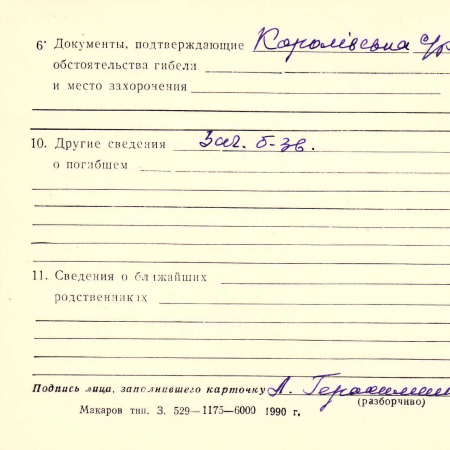 6• Документы, подтверждающие Королівська с/р
обстоятельства гибели
и место захоронения
10. Другие сведения Заг. б-зв.
о погибшем
11. Сведения о ближайших
родственниках
Подпись лица, заполнившего карточку Л.
(разборчиво)
Макаров тип. З. 529—1175—6000 1990 г.